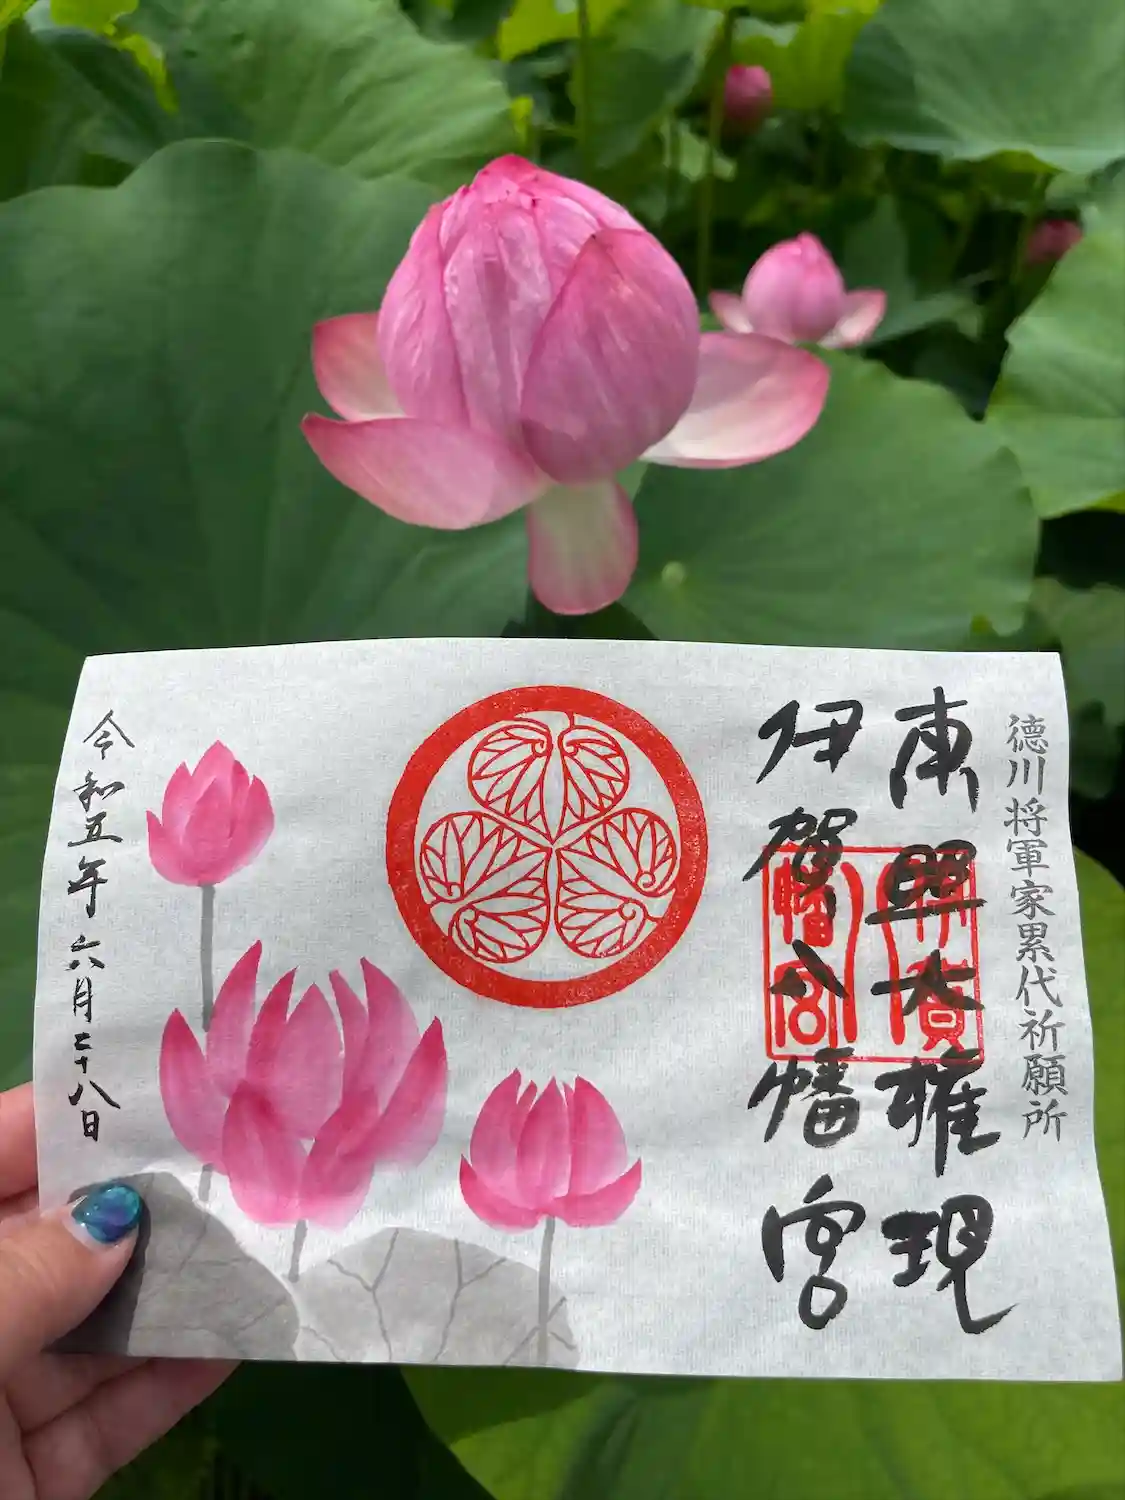 徳川将軍家累代祈願所
東照大権現
伊賀八幡宮
伊賀
八幡宮
令和五年六月二十八日